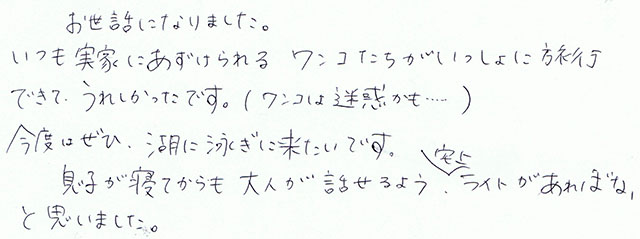 お世話になりました。
いつも実家にあずけられる ワンコたちがいっしょに旅行
できて、うれしかったです。(ワンコは迷惑かも……)
今度はぜひ、湖に泳ぎに来たいです。
息子が寝てからも 大人が話せるよう、室内ライトがあればな、
と思いました。